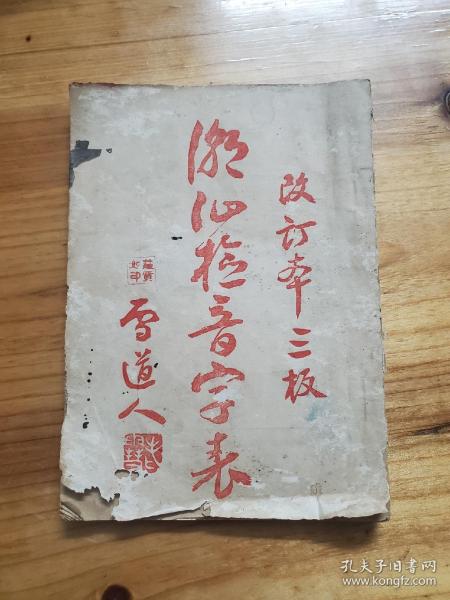 改订本三板
潮汕检音字表
雪道人
孔夫子旧书网
www.kongfz.com